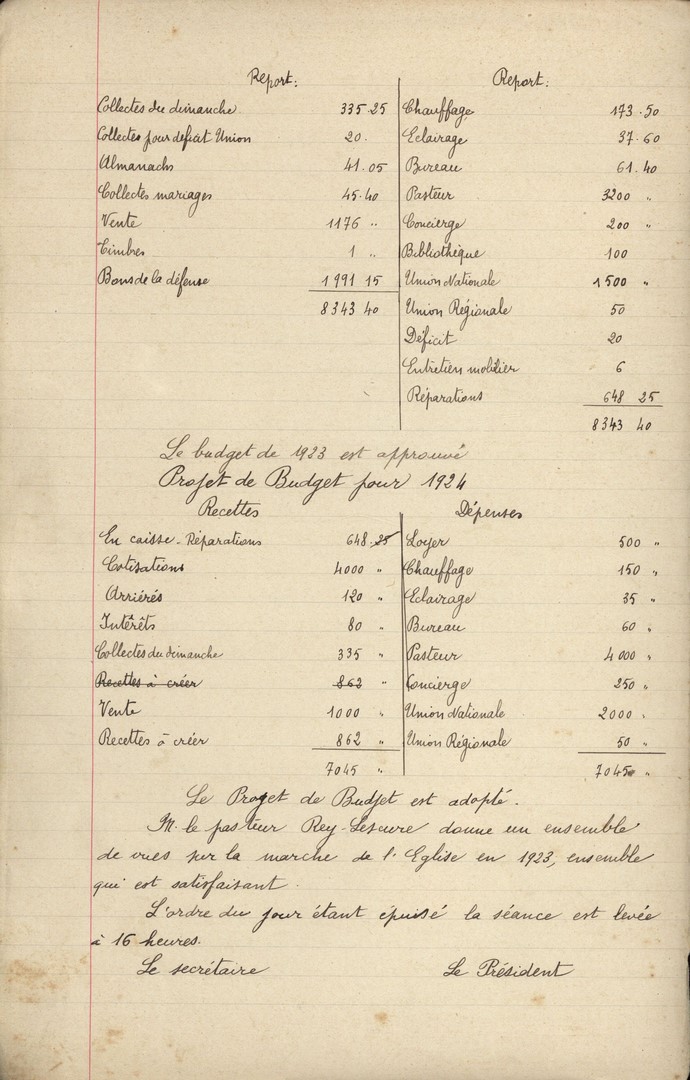 Report: Report:
Collectes du dimanche 335.25 Chauffage 173.50
Collectes pour deficit Union 20. Eclairage 37.60
Almanachs 41.05 Bureau 61.40
Collectes mariages 45.40 Pasteur 3200 "
Vente 1176 " Concierge 200 "
Timbres 1 " Bibliothèque 100
Bons de la défense 1991 15 Union Nationale 1500 "
8343 40 Union Régionale 50
Déficit 20
Entretien mobilier 6
Réparations 648 25
8343 40
Le budget de 1923 est approuvé
Projet de Budget pour 1924
Recettes Dépenses
En caisse - Réparations 648.25 Loyer 500 "
Cotisations 4000 " Chauffage 150 "
Arriérés 120 " Eclairage 35 "
Intérêts 80 " Bureau 60 "
Collectes du dimanche 335 " Pasteur 4000 "
Recettes à créer 862 " Concierge 250 "
Vente 1000 " Union Nationale 2000 "
Recettes à créer 862 " Union Régionale 50 "
7045 " 7045 "
Le Projet de Budjet est adopté.
M. le pasteur Rey-Lescure donne un ensemble
de vues sur la marche de l'Eglise en 1923, ensemble
qui est satisfaisant.
L'ordre du jour étant épuisé la séance est levée
à 16 heures.
Le secrétaire Le Président